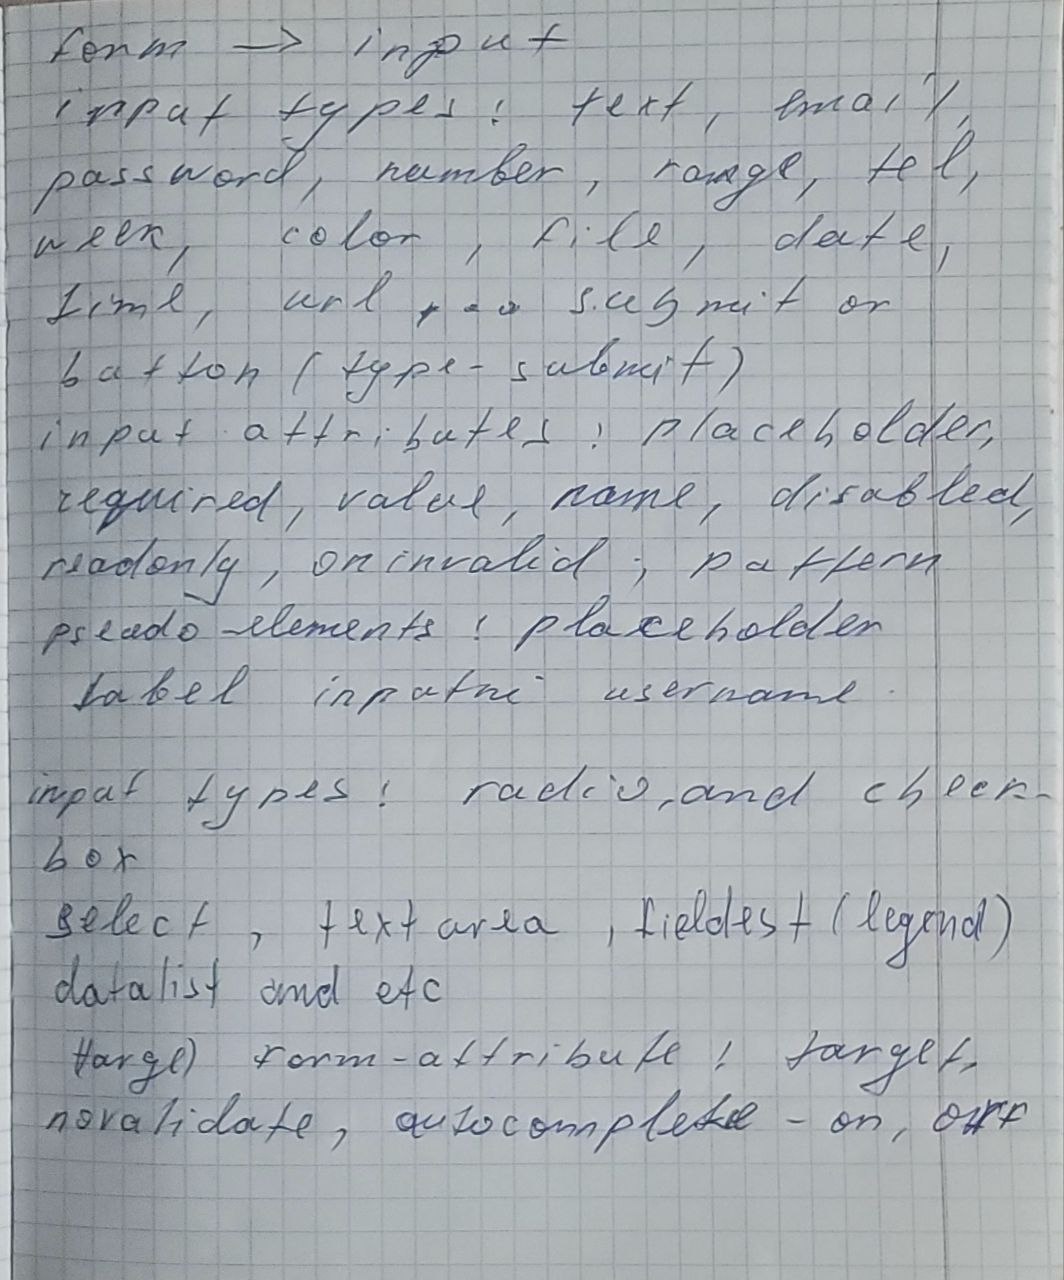 form → input
input types: text, email,
password, number, range, tel,
week, color, file, date,
time, url, submit or
button (type-submit)
input attributes: placeholder,
required, value, name, disabled,
readonly, oninvalid, pattern
pseudo-elements: placeholder
label username
input types: radio, and check-
box
select, textarea, fieldest (legend)
datalist and etc
form-attribute: target,
novalidate, autocomplete - on, off